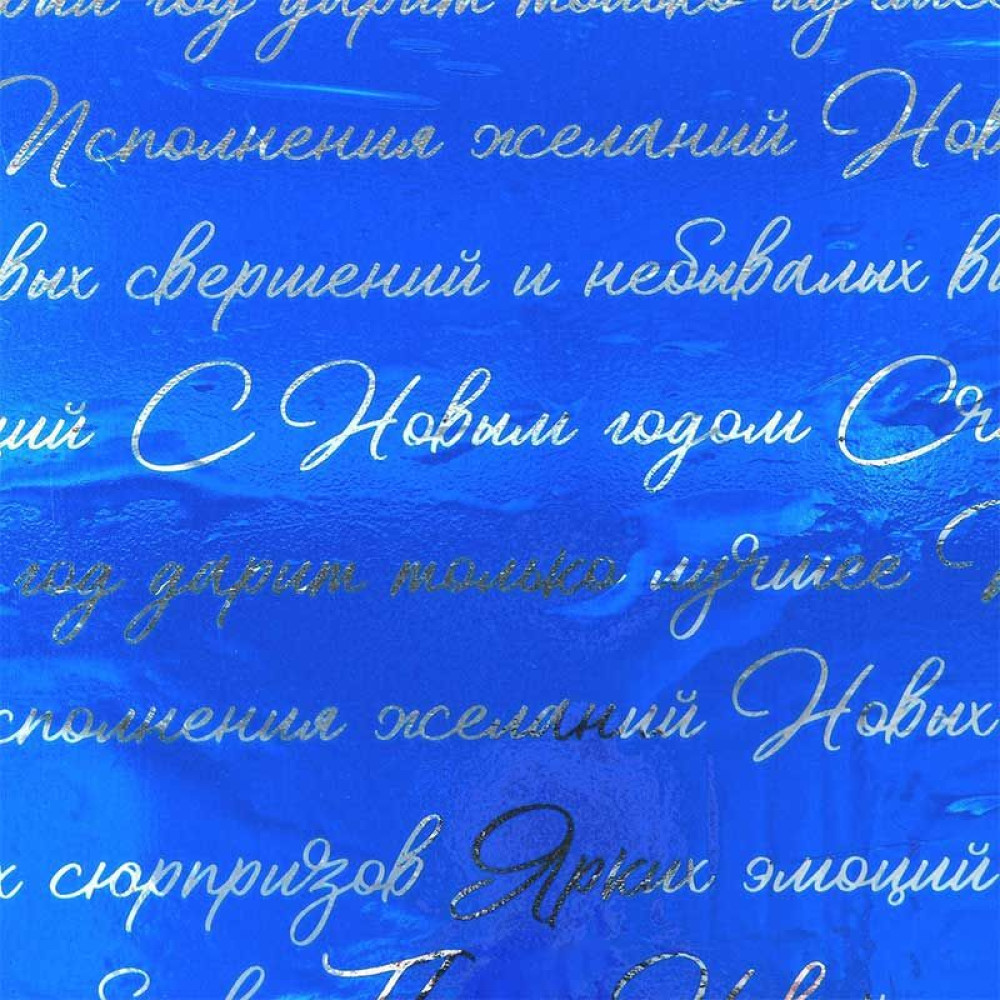 год дарит только лучшее
Исполнения желаний Нов
вых свершений и небывалых
ий С Новым годом С
год дарит только лучшее
сполнения желаний Новых
х сюрпризов Ярких эмоций